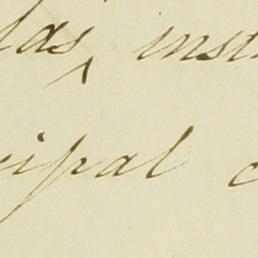 las, inst
cipal c